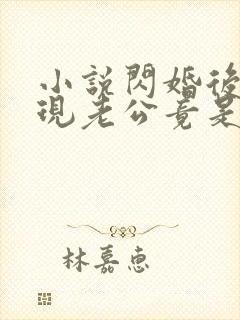 小說閃婚後
現老公竟是
林嘉惠